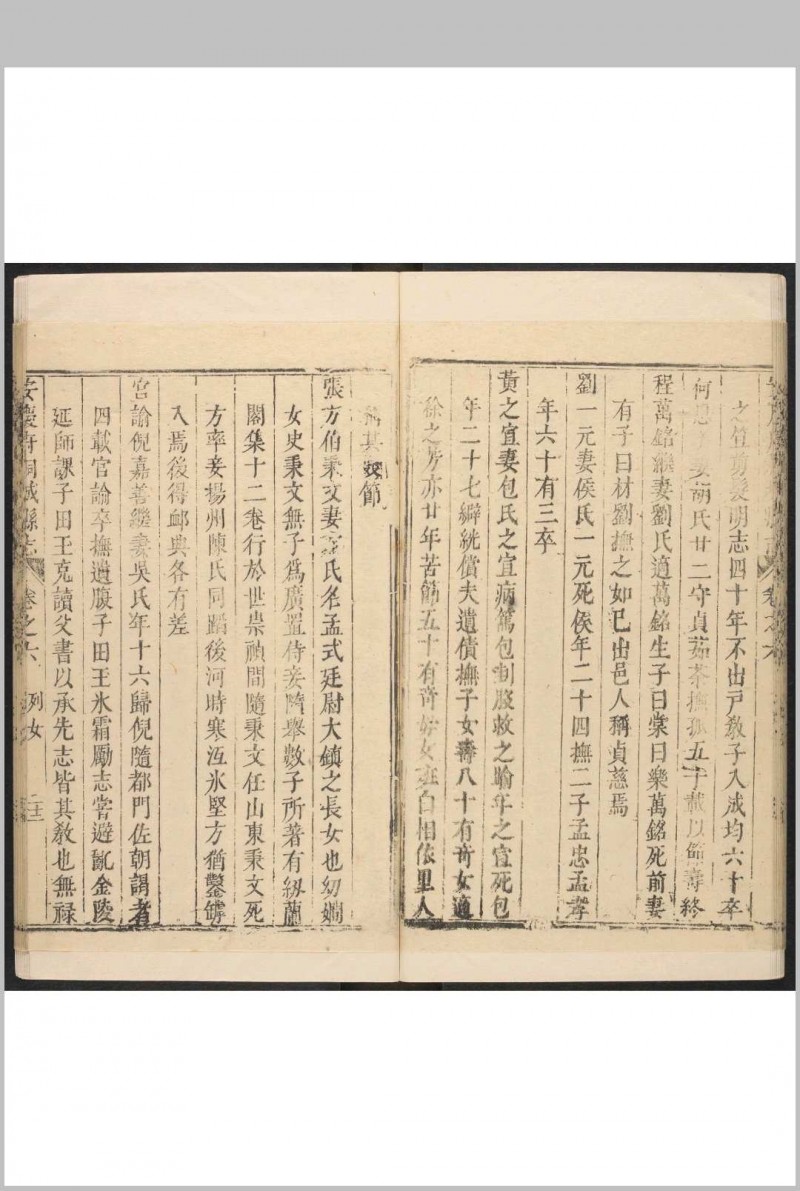 之笄剪髮明志四十年不出戸敎子入成均六十卒
何 妻胡氏廿二守貞茹荼撫孤五十載以節壽終
程萬銘繼妻劉氏適萬銘生子曰棠曰樂萬銘死前妻
有子曰材劉撫之如巳出邑人稱貞慈焉
劉一元妻侯氏一元死侯年二十四撫二子孟忠孟孝
年六十有三卒
黄之宜妻包氏之宜病篤包刲股救之踰年之宜死包
年二十七纑絖償夫遺債撫子女壽八十有奇女適
徐之 亦廿年苦節五十有奇 女 白相依里人
稱其雙節
張方伯秉文妻方氏名孟式廷尉大鎮之長女也幼嫺
女史秉文無子爲廣置侍妾隨舉數子所著有紉蘭
閣集十二卷行於世崇禎間隨秉文任山東秉文死
方率妾揚州陳氏同蹈後河時寒沍氷堅方猶鑿罅
入焉後得邮典各有差
宮諭倪嘉善繼妻吳氏年十六歸倪隨都門佐朝謁者
四載官諭卒撫遺腹子田玉氷霜勵志嘗避亂金陵
延師課子田王克讀父書以承先志皆其敎也無祿
安慶府桐城縣志 卷之六 列女 二十三